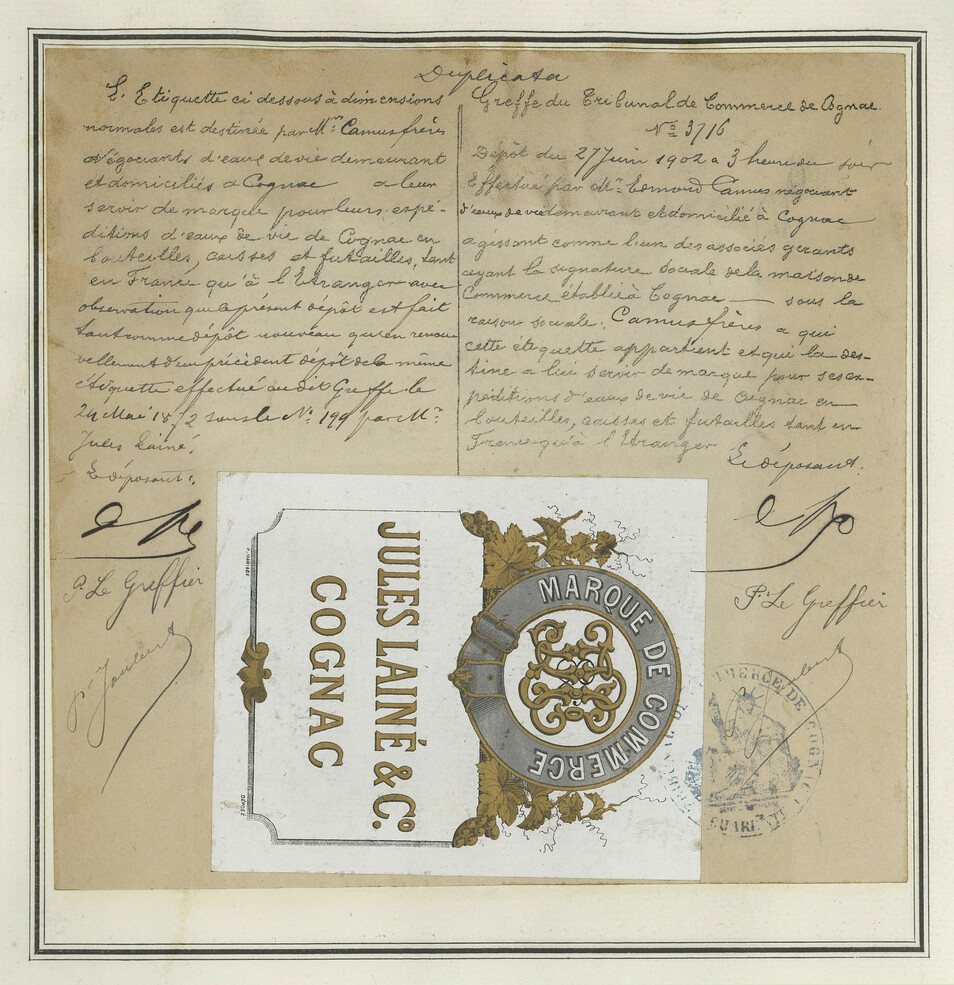 Duplicata
L'Etiquette ci dessous à dimensions
normales est destinée par Mrs Camus frères
négociants d'eaux de vie demeurant
et domiciliés à Cognac a leur
servir de marque pour leurs expé-
ditions d'eaux de vie de Cognac en
bouteilles, caisses et futailles, tant
en France qu'à l'Etranger avec
observation que le présent dépôt est fait
tant comme dépôt nouveau qu'en renou
vellement d'un précédent dépôt de la même
étiquette effectué au dit Greffe le
24 Mai 1872 sous le No. 199 par Mr.
Jules Lainé.
Le déposant:
P. Le Greffier
Greffe du Tribunal de Commerce de Cognac
No 3716
Dépôt du 27 Juin 1902 à 3 heure du soir
Effectué par Mr. Edmond Camus négociant
d'eaux de vie demeurant et domicilié à Cognac
agissant comme l'un des associés gerants
ayant la signature sociale de la maison de
Commerce établie à Cognac — sous la
raison sociale: Camus frères a qui
cette étiquette appartient et qui la des-
tine a lui servir de marque pour ses ex-
péditions d'eaux de vie de Cognac en
bouteilles, caisses et futailles tant en
France qu'à l'Etranger
Le déposant.
P. Le Greffier
MARQUE DE COMMERCE
JULES LAINÉ & Co.
COGNAC
DÉPOSÉ
COMMERCE DE COGNAC